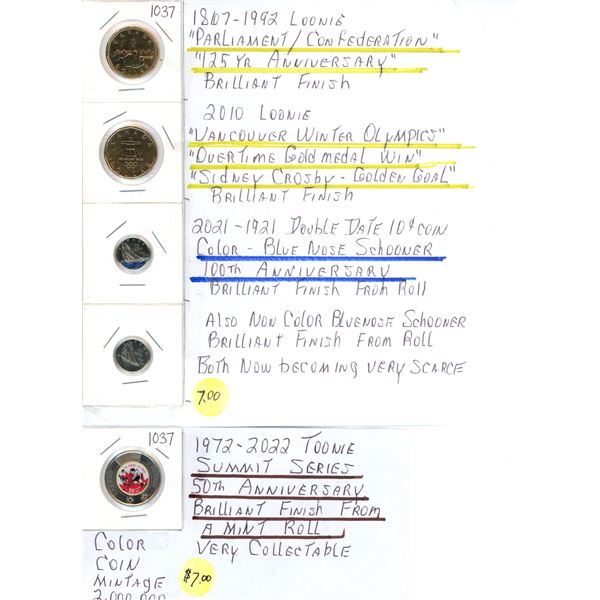 1037
1867-1992 Loonie
"Parliament/Confederation"
"125 Yr Anniversary"
Brilliant Finish
2010 Loonie
"Vancouver Winter Olympics"
"Overtime Gold medal Win"
"Sidney Crosby - Golden Goal"
Brilliant Finish
2021-1921 Double Date 10¢ coin
Color - Blue Nose Schooner
100th Anniversary
Brilliant Finish From Roll
Also Non Color Bluenose Schooner
Brilliant Finish From Roll
Both Now becoming very scarce
7.00
1037
1972-2022 Toonie
Summit Series
50th Anniversary
Brilliant Finish From
a Mint Roll
Very Collectable
Color
Coin
Mintage
2,000,000
$7.00